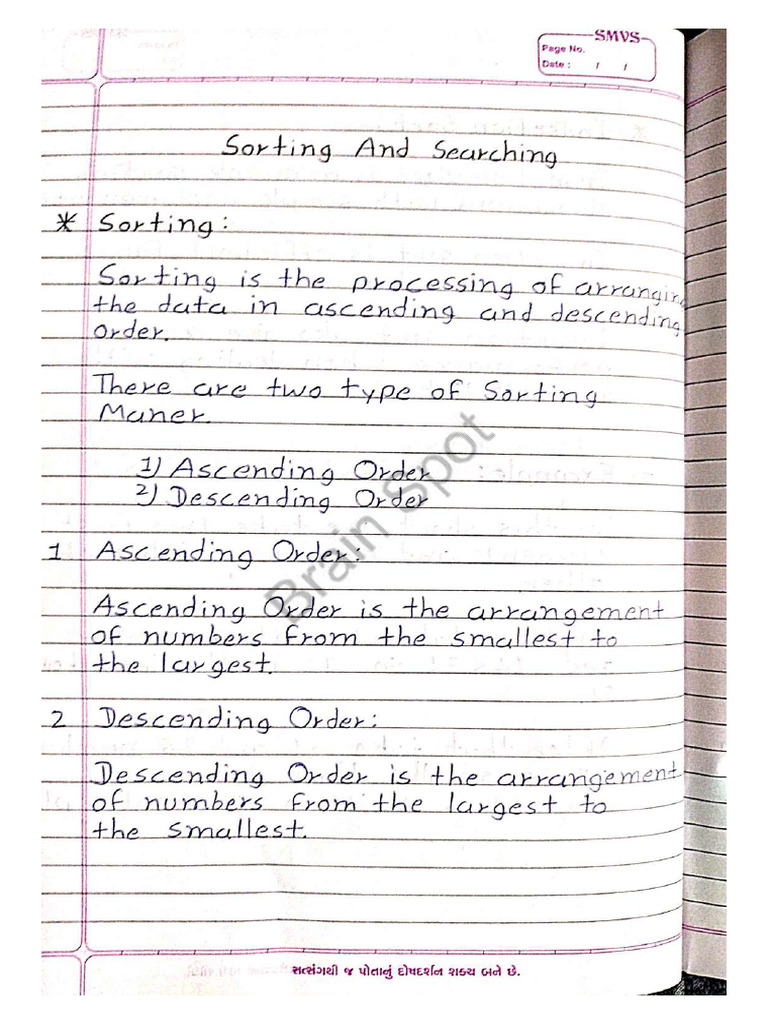 SMVS
Page No.
Date : / /
Sorting And Searching
* Sorting:
Sorting is the processing of arranging
the data in ascending and descending
order.
There are two type of Sorting
Maner.
1) Ascending Order
2) Descending Order
1 Ascending Order:
Ascending Order is the arrangement
of numbers from the smallest to
the largest.
2 Descending Order:
Descending Order is the arrangement
of numbers from the largest to
the smallest.
Brain Spot
સત્સંગથી જ પોતાનું દોષદર્શન શક્ય બને છે.